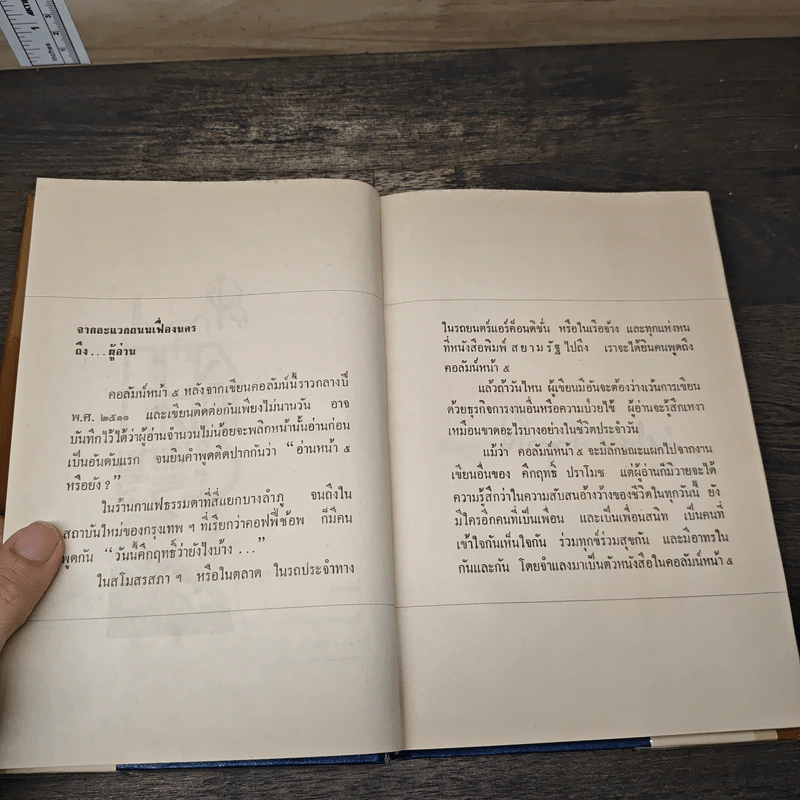 จากละแวกถนนเฟื่องนคร
ถึง...ผู้อ่าน
คอลัมน์หน้า ๕ หลังจากเขียนคอลัมน์นี้ราวกลางปี
พ.ศ. ๒๕๑๑ และเขียนติดต่อกันเพียงไม่นานวัน อาจ
บันทึกไว้ได้ว่าผู้อ่านจำนวนไม่น้อยจะพลิกหน้านั้นอ่านก่อน
เป็นอันดับแรก จนยินคำพูดติดปากกันว่า “อ่านหน้า ๕
หรือยัง ?”
ในร้านกาแฟธรรมดาที่สี่แยกบางลำภู จนถึงใน
สถาบันใหม่ของกรุงเทพ ฯ ที่เรียกว่าคอฟฟี่ช้อพ ก็มีคน
พูดกัน “วันนี้คึกฤทธิ์ว่ายังไงบ้าง ...”
ในสโมสรสภา ฯ หรือในตลาด ในรถประจำทาง
ในรถยนตร์แอร์ค็อนดิชั่น หรือในเรือจ้าง และทุกแห่งหน
ที่หนังสือพิมพ์ สยามรัฐ ไปถึง เราจะได้ยินคนพูดถึง
คอลัมน์หน้า ๕
แล้วถ้าวันไหน ผู้เขียนมีอันจะต้องว่างเว้นการเขียน
ด้วยธุรกิจการงานอื่นหรือความป่วยไข้ ผู้อ่านจะรู้สึกเหงา
เหมือนขาดอะไรบางอย่างในชีวิตประจำวัน
แม้ว่า คอลัมน์หน้า ๕ จะมีลักษณะแผกไปจากงาน
เขียนอื่นของ คึกฤทธิ์ ปราโมช แต่ผู้อ่านก็มิวายจะได้
ความรู้สึกว่าในความสับสนอ้างว้างของชีวิตในทุกวันนี้ ยัง
มีใครอีกคนที่เป็นเพื่อน และเป็นเพื่อนสนิท เป็นคนที่
เข้าใจกันเห็นใจกัน ร่วมทุกข์ร่วมสุขกัน และมีอาทรใน
กันและกัน โดยจำแลงมาเป็นตัวหนังสือในคอลัมน์หน้า ๕